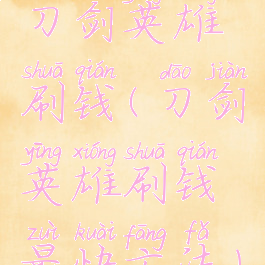 刀剑英雄
shuā qián dāo jiàn
刷钱(刀剑
yīng xióng shuā qián
英雄刷钱
zuì kuài fāng fǎ
最快方法)